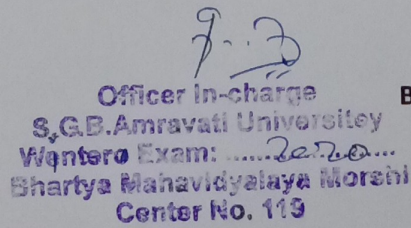 Officer In-charge
S,G.B.Amravati Universitey
Wentero Exam: ......2020....
Bhartya Mahavidyalaya Morshi
Center No. 119
B